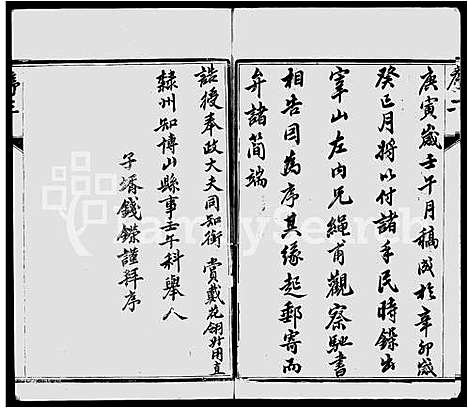 庚寅歲壬午月稿成於辛卯歲
癸正月將以付諸手民時鑅出
宰山左內兄繩甫觀察馳書
相告因為序其緣起郵寄而
弁諸簡端
誥授奉政大夫同知銜 賞戴花翎升用直
隸州知博山縣事壬午科舉人
子壻錢鑅謹拜序
FamilySearch